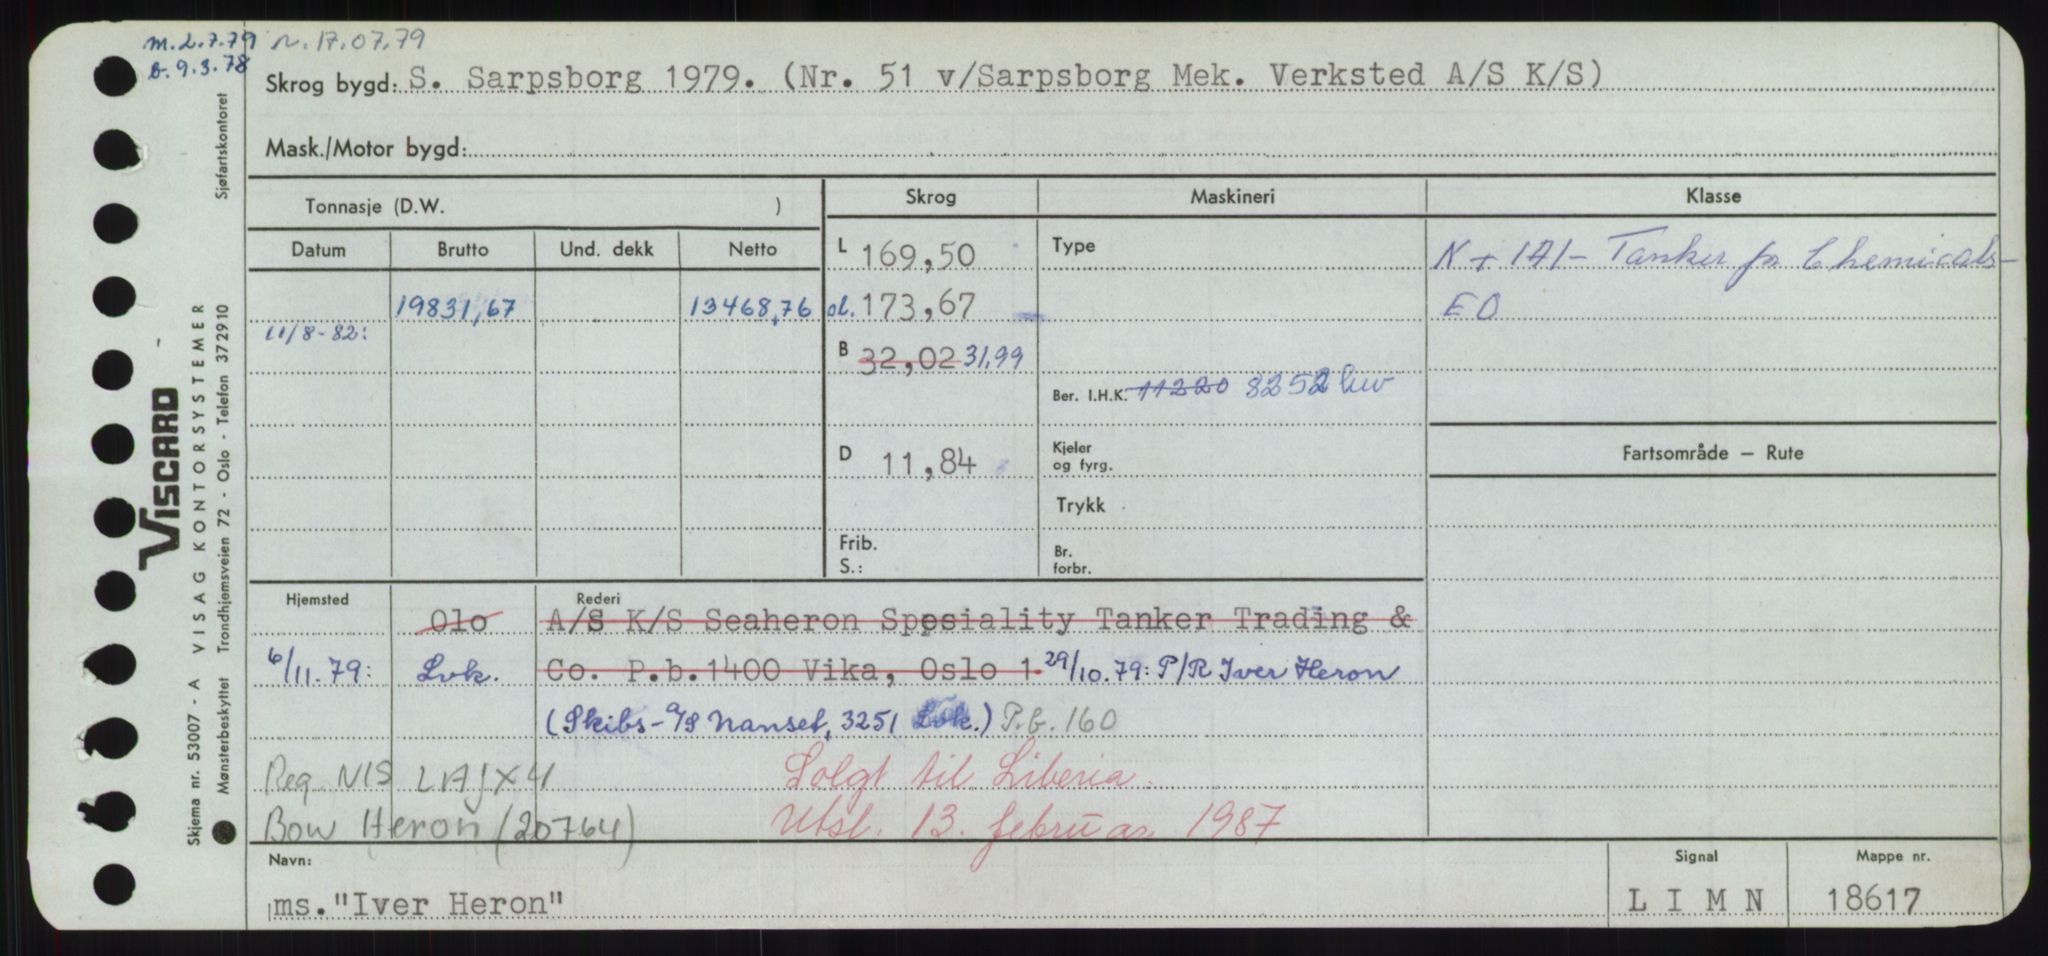 m. 2.7.79 n. 17.07.79
b. 9.3.78
Skrog bygd: S. Sarpsborg 1979. (Nr. 51 v/Sarpsborg Mek. Verksted A/S K/S)
Mask./Motor bygd:
Tonnasje (D.W. )
Skrog Maskineri Klasse
Datum Brutto Und. dekk Netto
L 169,50 Type N + 1A1 - Tanker for Chemicals -
19831,67 13468,76 ol. 173,67 EO
11/8-82:
B 32,02 31,99
Ber. I.H.K. 11220 8252 kw
Fartsområde – Rute
D 11,84 Kjeler
og fyrg.
Trykk
Frib. Br.
S.: forbr.
Hjemsted Rederi
Olo A/S K/S Seaheron Spesiality Tanker Trading &
6/11.79: Lvk. Co. P.b.1400 Vika, Oslo 1. 29/10.79: P/R Iver Heron
(Skibs-A/S Nanset, 3251 Lvk.) P.b. 160
Reg NIS LAJX4 Solgt til Liberia.
Bow Heron (20764) Utsl. 13. februar 1987
Navn: Signal Mappe nr.
ms."Iver Heron" L I M N 18617
Skjema nr. 53007 - A VISAG KONTORSYSTEMER
VISCARD
Mønsterbeskyttet Trondhjemsveien 72 - Oslo - Telefon 372910 Sjøfartskontoret